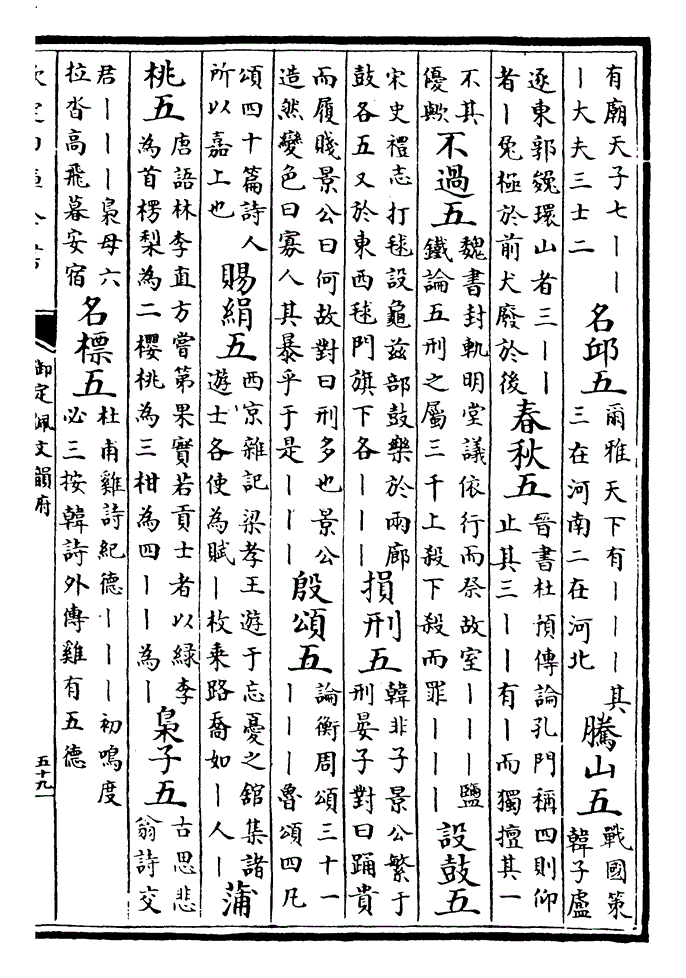 有廟天子七｜｜｜
｜大夫三士二
名邱五
爾雅天下有｜｜｜｜其
三在河南二在河北
騰山五
戰國策
韓子盧
逐東郭㕙環山者三｜｜
者｜兔極於前犬廢於後
春秋五
晉書杜預傳論孔門稱四則仰
止其三｜｜有｜而獨擅其一
不其
優歟
不過五
魏書封軌明堂議依行而祭故室｜｜｜鹽
鐵論五刑之屬三千上殺下殺而罪｜｜｜
設鼓五
宋史禮志打毬設龜兹部鼓樂於兩廊
鼓各五又於東西毬門旗下各｜｜｜
損刑五
韓非子景公繁于
刑晏子對曰踊貴
而履賤景公曰何故對曰刑多也景公
造然變色曰寡人其暴乎于是｜｜｜
殷頌五
論衡周頌三十一
｜｜｜魯頌四凡
頌四十篇詩人
所以嘉上也
賜絹五
西京雜記梁孝王遊于忘憂之舘集諸
遊士各使為賦｜枚乗路喬如｜人｜
蒲
桃五
唐語林李直方嘗第果實若貢士者以緑李
為首楞梨為二櫻桃為三柑為四｜｜為｜
梟子五
古思悲
翁詩交
君｜｜｜梟母六
拉沓高飛暮安宿
名標五
杜甫雞詩紀德｜｜｜初鳴度
必三按韓詩外傳雞有五德
欽定四庫全書
御定佩文韻府
五十九